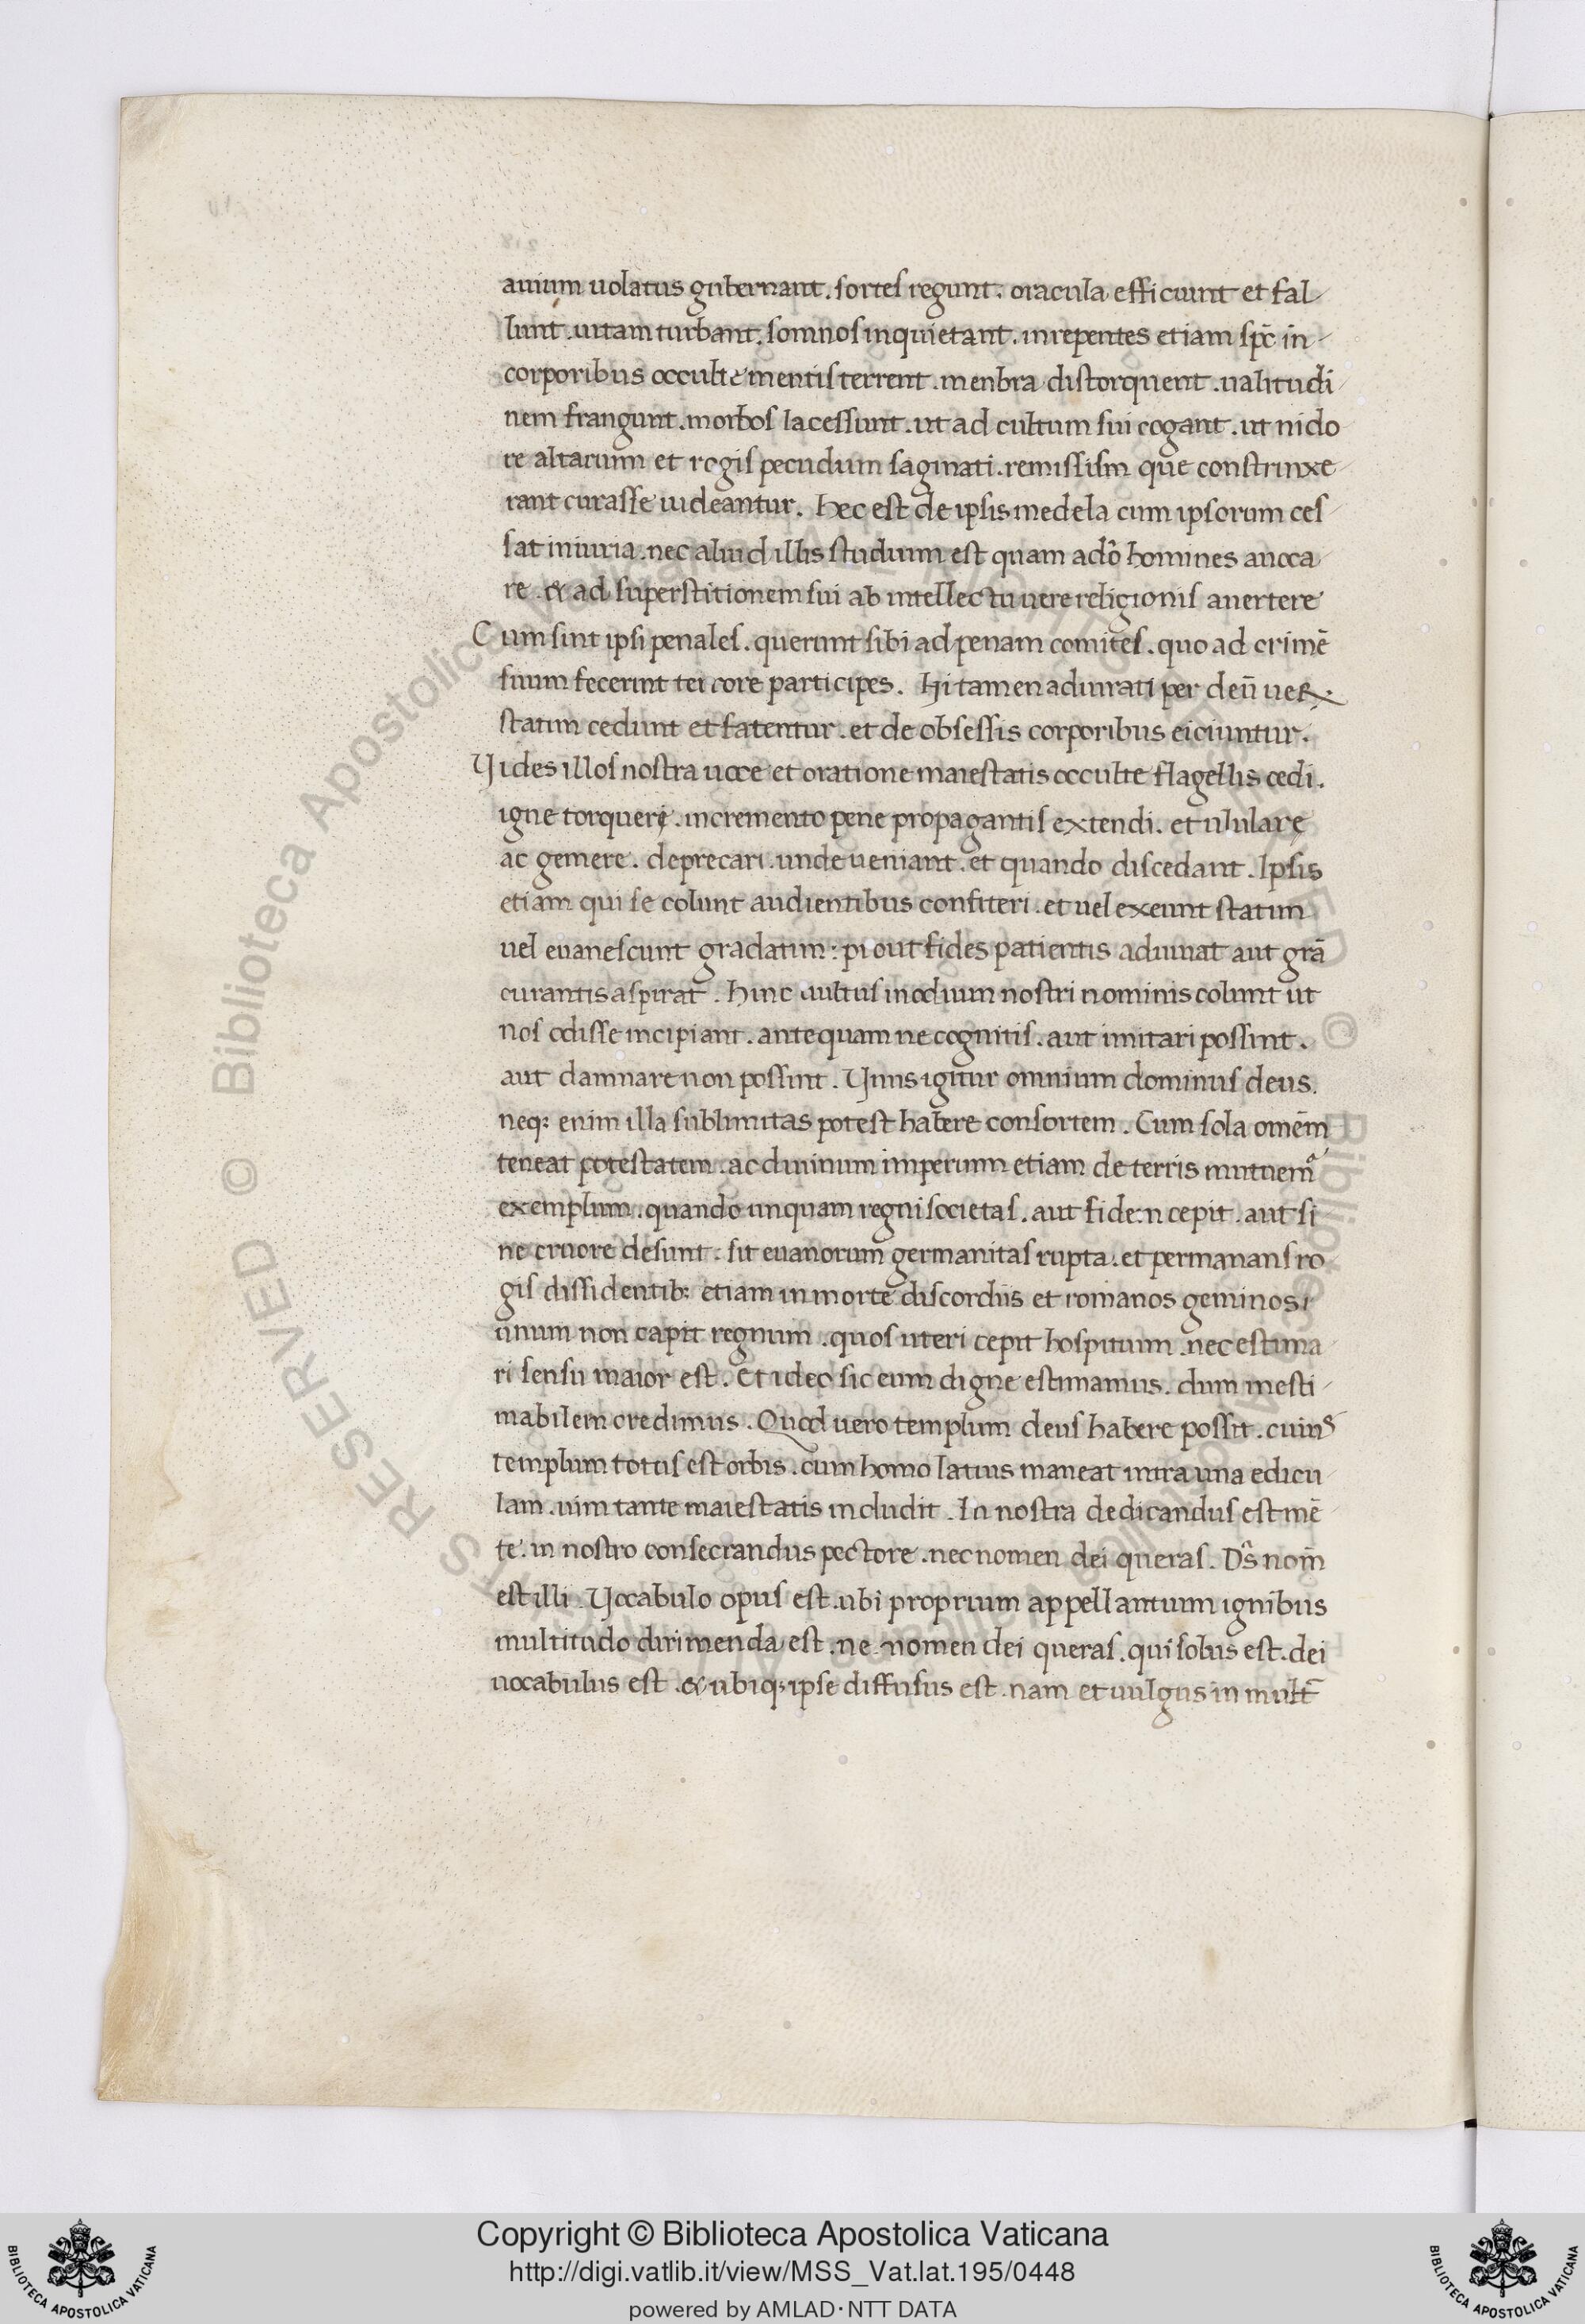 auium uolatus gubernant. sortes regunt. oracula efficiunt et fal
lunt. uitam turbant. somnos inquietant. inrepentes etiam sp̄c in
corporibus occulte mentis terrent. menbra distorquent. ualitudi
nem frangunt. morbos lacessunt. ut ad cultum sui cogant. ut nido
re altarium et rogis pecudum saginati. remissism que constrinxe
rant curasse uideantur. Hec est de ipsis medela cum ipsorum ces
sat iniuria. nec aliud illis studium est quam ado homines auoca
re. & ad superstitionem sui ab intellectu uere religionis auertere
Cum sint ipsi penales. querunt sibi ad penam comites. quo ad crimē
suum fecerint tei rore participes. Hi tamen adiurati per deū ueꝝ
statim cedunt et fatentur. et de obsessis corporibus eiciuntur.
Uides illos nostra uoce et oratione maiestatis occulte flagellis cedi.
igne torquere. incremento pene propagantis extendi. et ululare
ac gemere. deprecari. unde ueniant. et quando discedant. Ipsis
etiam qui se colunt audientibus confiteri. et uel exeunt statim
uel euanescunt gradatim: prout fides patientis adiuuat aut grā
curantis aspirat. Hinc uultus inodium nostri nominis colunt ut
nos odisse incipiant. antequam ne cognitis. aut imitari possint.
aut damnare non possint. Unus igitur omnium dominus deus.
neq; enim illa sublimitas potest habere consortem. Cum sola omēm
teneat potestatem. ac diuinum imperium etiam de terris mutuem
exemplum. quando unquam regni societas. aut fiden cepit. aut si
ne cruore desunt. sit euanorum germanitas rupta. et permanans ro
gis dissidentib; etiam in morte discordiis et romanos geminos
unum non capit regnum. quos uteri cepit hospitium. nec estima
ri sensu maior est. Et ideo sic eum digne estimamus. dum inesti
mabilem credimus. Quod uero templum deus habere possit. cuius
templum totus est orbis. cum homo latius maneat intra una edicu
lam. uim tante maiestatis includit. In nostra dedicandus est mē
te. in nostro consecrandus pectore. nec nomen dei queras. Ds̄ nom̄
est illi. Uocabulo opus est. ubi proprium appellantium ignibus
multitudo dirimenda est. ne nomen dei queras. qui solus est. dei
uocabulus est. & ubiq; ipse diffusus est. nam et uulgus in mult̄
Copyright © Biblioteca Apostolica Vaticana
http://digi.vatlib.it/view/MSS_Vat.lat.195/0448
powered by AMLAD·NTT DATA